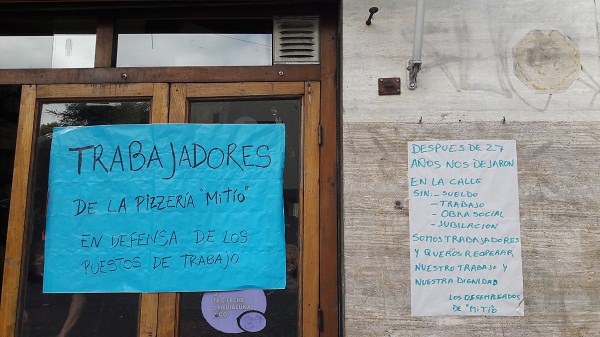 TRABAJADORES
DE LA PIZZERÍA "MiTío"
EN DEFENSA DE LOS
PUESTOS DE TRABAJO
DESPUES DE 27
AÑOS NOS DEJARON
EN LA CALLE
SIN: - SUELDO
- TRABAJO
- OBRA SOCIAL
- JUBILACION
SOMOS TRABAJADORES
Y QUERÓS REOPERAR
NUESTRO TRABAJO Y
NUESTRA DIGNIDAD
LOS DESEMPLEADOS
DE "MiTÍO